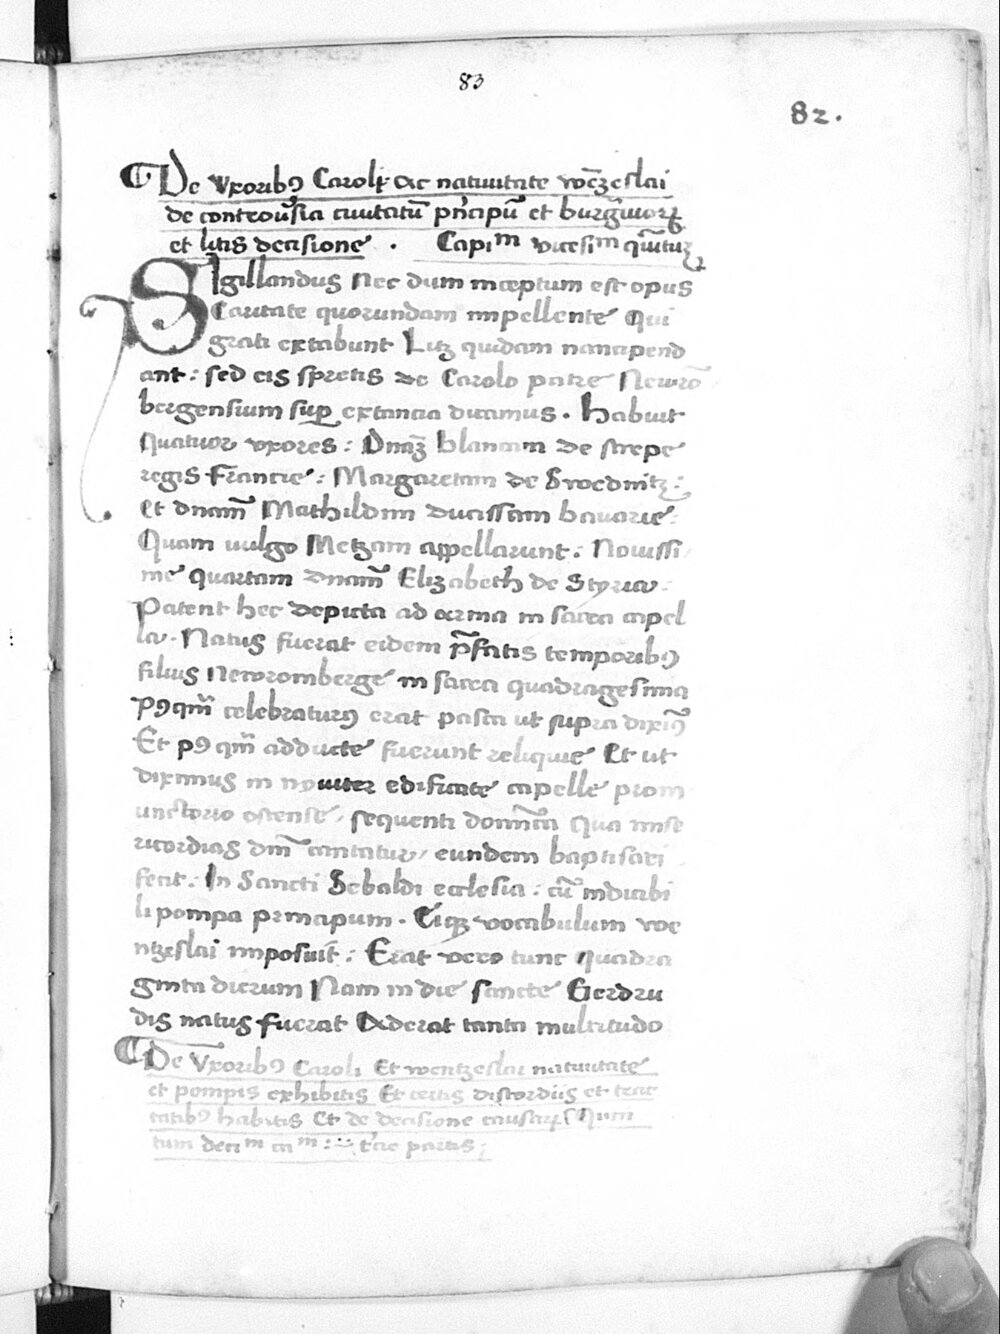 83
82.
De vxoribꝰ Caroli Ac natiuitate wēzeslai
de controuˢsia ciuitatū pͥncipū et burgͣuiorꝝ
et litis decisione . Capiᵐ vicesiᵐ qͥntū
Sigillandus Nec dum inceptum est opus
Caritate quorundam impellente Qui
grati extabunt Litz quidam nancipend
ant : sed eis spretis de Carolo patre Newrō
bergensium suꝑ extancia dicamus . Habuit
quatuor vxores : Dnaꝫ blancam de stirpe
regis Francie : Margaretam de Swednitz :
et dnam̄ Mathildim ducissam bauarie :
Quam uulgo Metzam appellarunt : Nouissi
me quartam dnam̄ Elizabeth de Styria :
Patent hec depicta ad arma in sacra capel
la . Natus fuerat eidem p̄fatis temporibꝰ
filius Newromberge in sacra quadragesima
Pꝰqm̄ celebraturꝰ erat pasca ut supra diximꝰ
Et pꝰqm̄ adducte fuerunt reliquie Et ut
diximus in nouiter edificate capelle prom
unctorio ostense / sequenti domīca Qua mise
ricordias dm̄ cantatur / eundem baptisari
fecit : In Sancti Sebaldi ecclesia : cū indicibi
li pompa principum . Eiqꝫ vocabulum we
ntzeslai imposuit : Erat vero tunc quadra
ginta dierum Nam in die sancte Gerdru
dis natus fuerat Aderat tanta multitudo
De Vxoribꝰ Caroli Et wentzeslai natiuitate
et pompis exhibitis Et certis discordiis et trac
tatibꝰ habitis Et de decisione causarꝝ Quin
tum deciᵐ caᵐ : tͨie partis ;